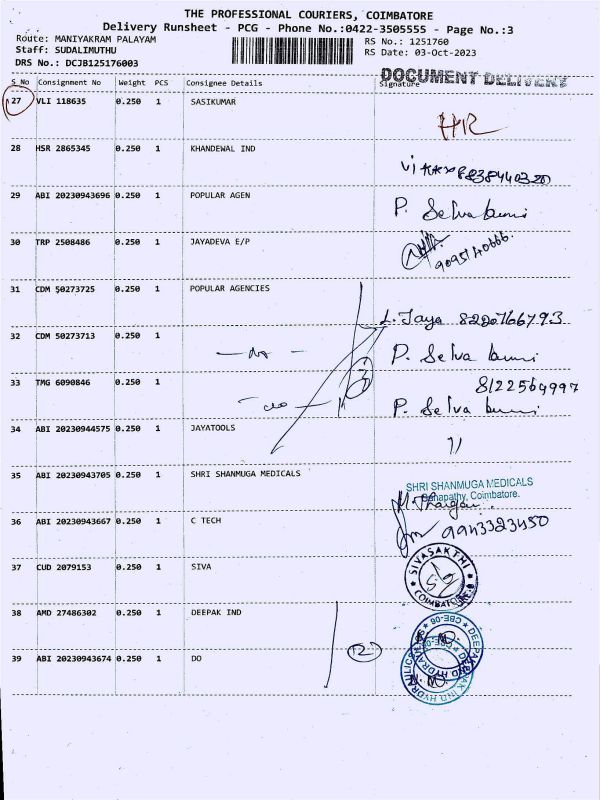 THE PROFESSIONAL COURIERS, COIMBATORE
Delivery Runsheet - PCG - Phone No.:0422-3505555 - Page No.:3
Route: MANIYAKRAM PALAYAM
RS No.: 1251760
Staff: SUDALIMUTHU
RS Date: 03-Oct-2023
DRS No.: DCJB125176003
DOCUMENT DELIVERY
S No Consignment No Weight PCS Consignee Details Signature
27 VLI 118635 0.250 1 SASIKUMAR
28 HSR 2865345 0.250 1 KHANDEWAL IND
29 ABI 20230943696 0.250 1 POPULAR AGEN P. Selva kumi
30 TRP 2508486 0.250 1 JAYADEVA E/P 9095140666.
31 CDM 50273725 0.250 1 POPULAR AGENCIES
L. Jaya 8220766793
32 CDM 50273713 0.250 1
P. Selva kumi
33 TMG 6090846 0.250 1 8122564997
P. Selva kumi
34 ABI 20230944575 0.250 1 JAYATOOLS
11
35 ABI 20230943705 0.250 1 SHRI SHANMUGA MEDICALS
SHRI SHANMUGA MEDICALS
Ganapathy, Coimbatore.
36 ABI 20230943667 0.250 1 C TECH 9943323450
37 CUD 2079153 0.250 1 SIVA
SIVASAKTHI
COIMBATORE
38 AMD 27486302 0.250 1 DEEPAK IND
39 ABI 20230943674 0.250 1 DO
DEEPAK IND HYDRAULICS
CBE-06